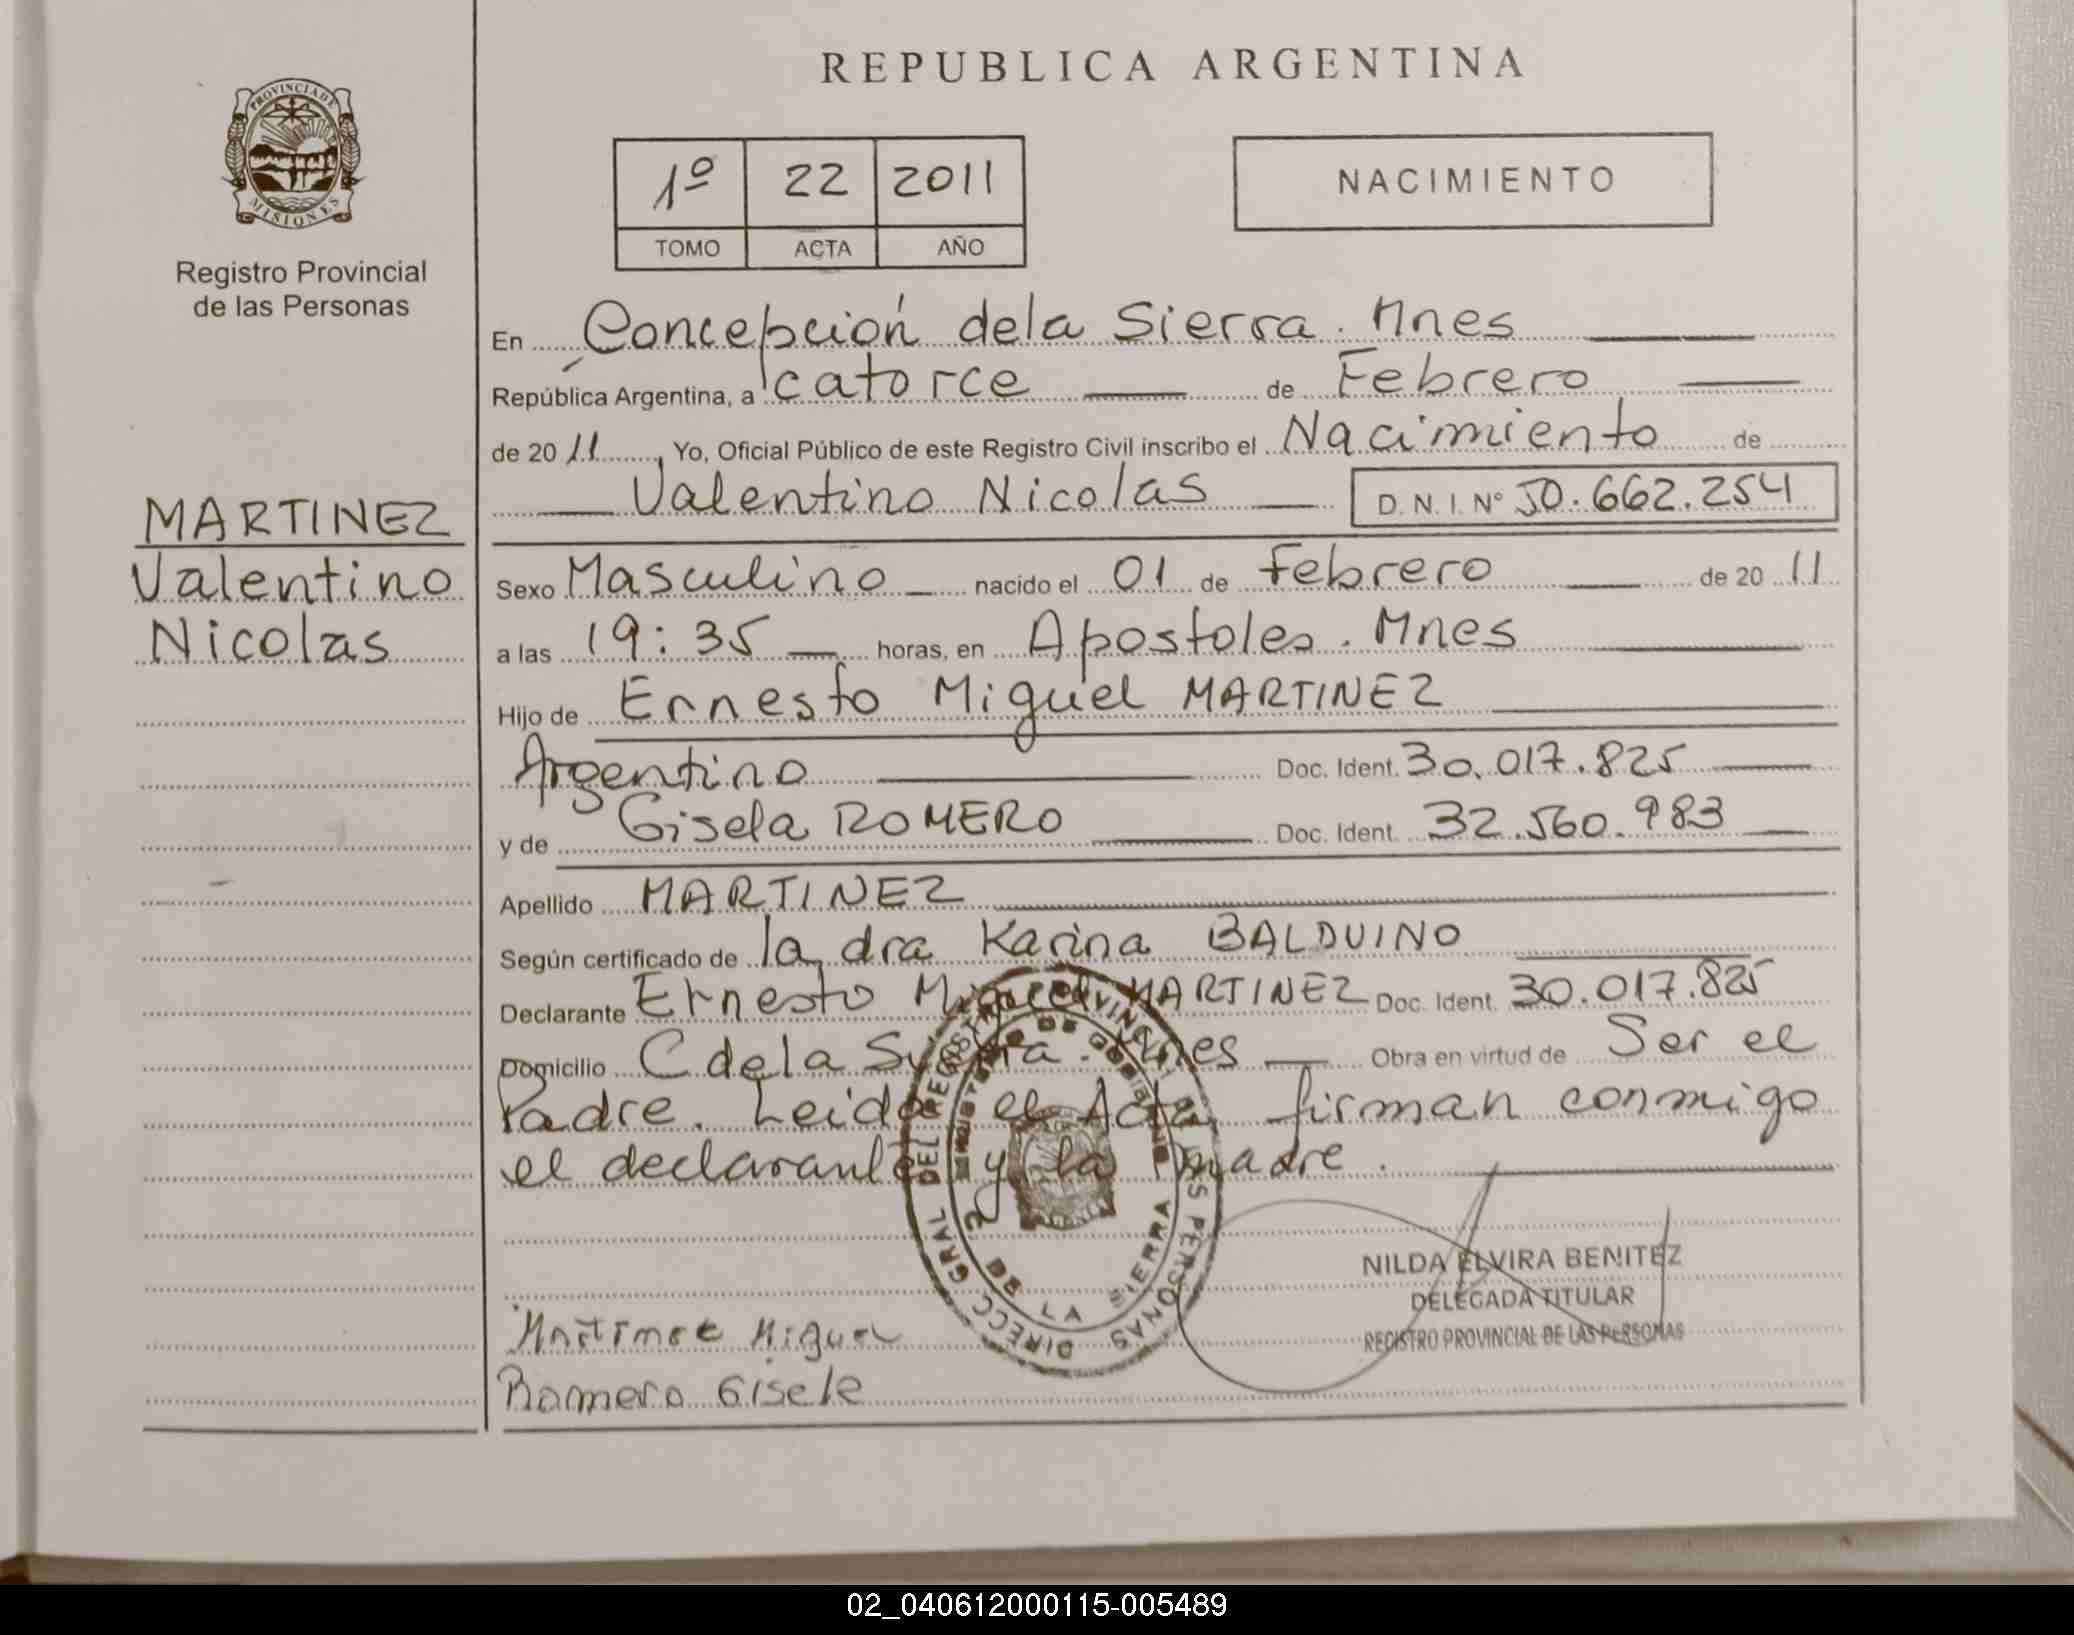 REPUBLICA ARGENTINA
PROVINCIA DE
MISIONES
Registro Provincial
de las Personas
1º 22 2011
TOMO ACTA AÑO
NACIMIENTO
MARTINEZ
Valentino
Nicolas
En Concepción dela Sierra. Mnes
República Argentina, a catorce de Febrero
de 2011, Yo, Oficial Público de este Registro Civil inscribo el Nacimiento de
Valentino Nicolas D. N. I. Nº 50.662.254
Sexo Masculino nacido el 01 de Febrero de 2011
a las 19:35 horas, en Apostoles. Mnes
Hijo de Ernesto Miguel MARTINEZ
Argentino Doc. Ident. 30.017.825
y de Gisela ROMERO Doc. Ident. 32.560.983
Apellido MARTINEZ
Según certificado de la dra Karina BALDUINO
Declarante Ernesto Miguel MARTINEZ Doc. Ident. 30.017.825
Domicilio C dela Sierra. Mnes Obra en virtud de Ser el
Padre. Leida el Acta firman conmigo
el declarante y la madre.
DIRECC GRAL DEL REGISTRO PROVINCIAL DE LAS PERSONAS
MINISTERIO DE GOBIERNO
C. DE LA SIERRA
NILDA ELVIRA BENITEZ
DELEGADA TITULAR
REGISTRO PROVINCIAL DE LAS PERSONAS
Martinez Miguel
Romero Gisele
02_040612000115-005489